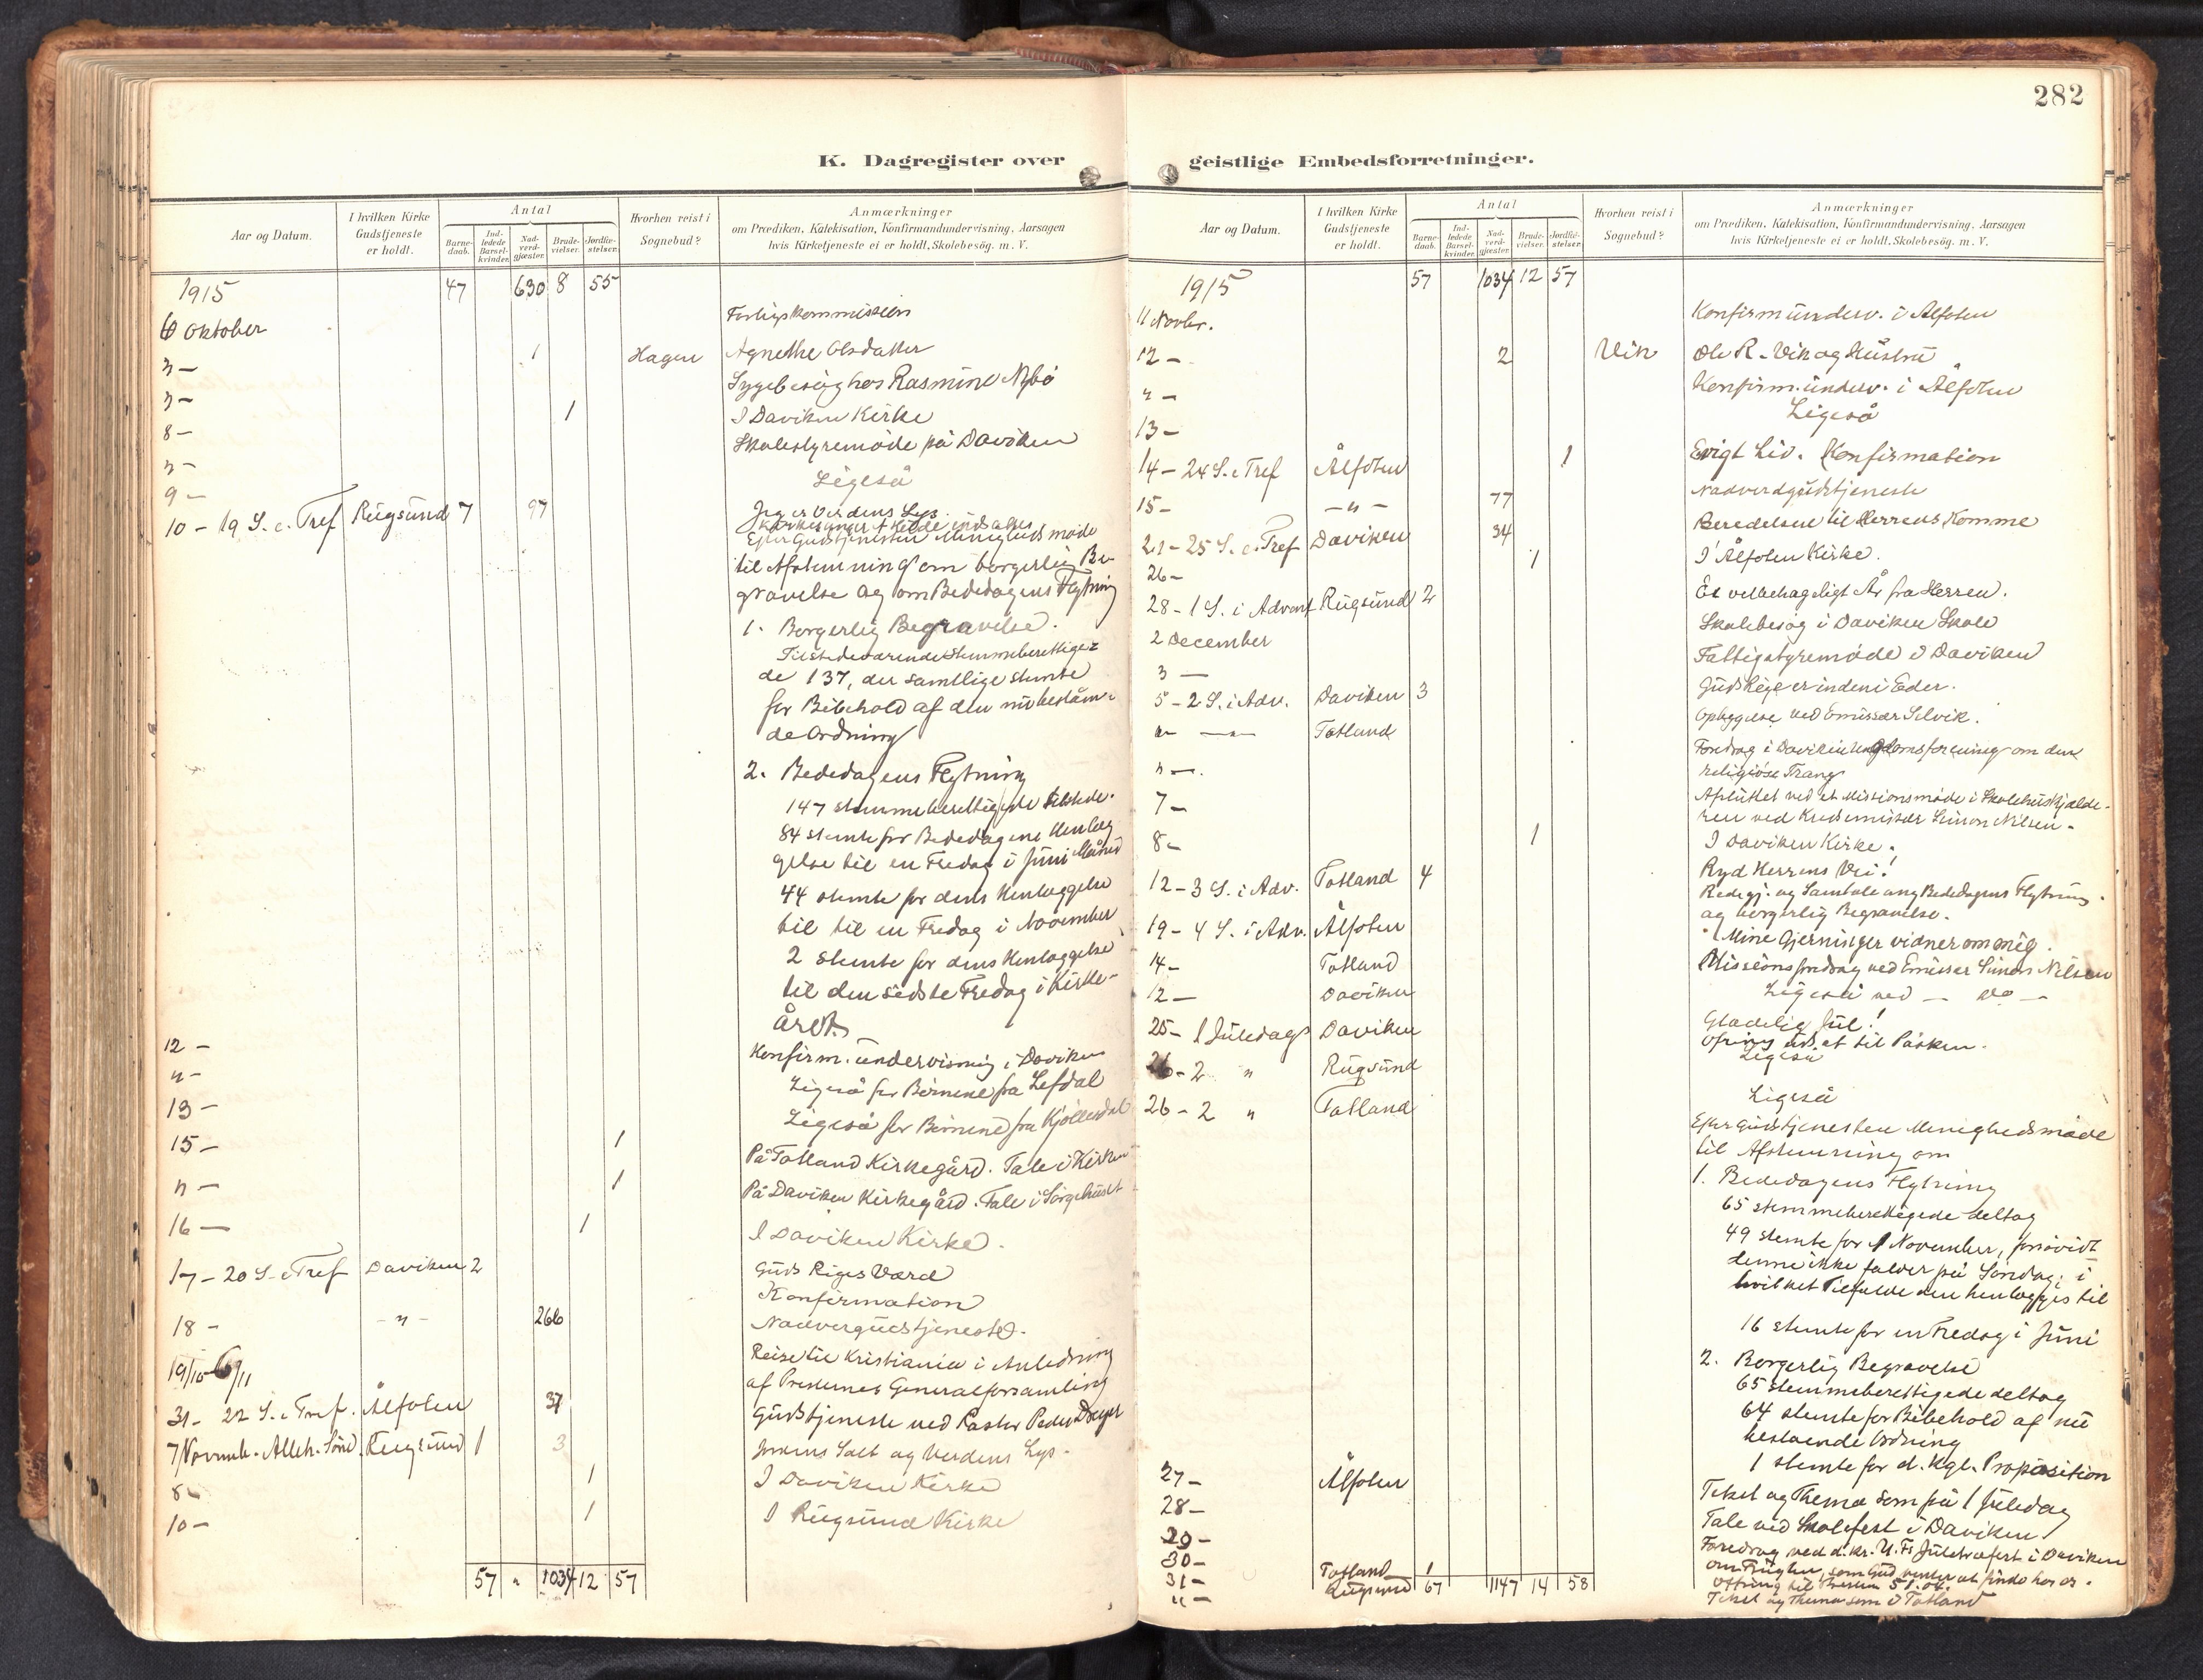 282
K. Dagregister over
Aar og Datum.
I hvilken Kirke Gudstjeneste er holdt.
Antal
Barne-daab.
Ind-ledede Barsel-kvinder.
Nad-verd-gjæster.
Brude-vielser.
Jordfæ-stelser.
Hvorhen reist i Sognebud?
Anmærkninger
om Prædiken, Katekisation, Konfirmandundervisning, Aarsagen
hvis Kirketjeneste ei er holdt, Skolebesøg. m. V.
1915 47 630 8 55
6 Oktober Forligskommission
" — 1 Hagen Agnethe Olsdatter
" — Sygebesøg hos Rasmine Nybø
8 — 1 I Daviken Kirke
" — Skolestyremøde på Daviken
9 — Ligeså
10 — 19 S. e. Tref Rugsund 7 97 Jeg er Verdens Lys.
Efter Gudstjenesten Menighedsmøde
til Afstemning om borgerlig Be-
gravelse og om Bededagens Flytning
1. Borgerlig Begravelse.
Tilstedeværende Stemmeberettige-
de 137, der samtlige stemte
for Bibehold af den nu beståen-
de Ordning
2. Bededagens Flytning
147 stemmeberettigede tilstede.
84 stemte for Bededagens Henlæg
gelse til en Fredag i Juni Måned
44 stemte for dens Henlæggelse
til til en Fredag i November
2 stemte for dens Henlæggelse
til den sidste Fredag i Kirke-
året.
12 — Konfirm. undervisning i Daviken
" — Ligeså for Børnene fra Lefdal
13 — Ligeså for Børnene fra Kjøllesdal
15 — 1 På Totland Kirkegård. Tale i Kirken
" — 1 På Daviken Kirkegård. Tale i Sørgehuset
16 — 1 I Daviken Kirke.
17 — 20 S. e Tref Daviken 2 Guds Riges Værd
Konfirmation
18 — — " — 266 Nadvergudstjeneste.
19/10 - 6/11 Reise til Kristiania i Anledning
af Presternes Generalforsamling
31 — 22 S. e Tref. Ålfoten 37 Gudstjeneste ved Pastor Peder Dreyer
7 Novemb. Alleh. Sønd. Rugsund 1 3 Jordens Salt og Verdens Lys.
8 — 1 I Daviken Kirke
10 — 1 I Rugsund Kirke
57 " 1034 12 57
geistlige Embedsforretninger.
Aar og Datum.
I hvilken Kirke Gudstjeneste er holdt.
Antal
Barne-daab.
Ind-ledede Barsel-kvinder.
Nad-verd-gjæster.
Brude-vielser.
Jordfæ-stelser.
Hvorhen reist i Sognebud?
Anmærkninger
om Prædiken, Katekisation, Konfirmandundervisning, Aarsagen
hvis Kirketjeneste ei er holdt, Skolebesøg. m. V.
1915 57 1034 12 57
11 Novbr. Konfirmunderv. i Ålfoten
12 — 2 Vik Ole R. Vik og Hustru
" — Konfirm. underv. i Ålfoten
13 — Ligeså
14 — 24 S. e Tref Ålfoten 1 Evigt Liv. Konfirmation
15 — — " — 77 Nadverdgudstjeneste
21 — 25 S. e. Tref Daviken 34 Beredelsen til Herrens Komme
26 — 1 I Ålfoten Kirke.
28 — 1 S. i Advent Rugsund 2 Et velbehageligt År fra Herren.
2 December Skolebesøg i Daviken Skole
3 — Fattigstyremøde i Daviken
5 — 2 S. i Adv. Daviken 3 Guds Rige er inden i Eder.
" — — " — Totland Opbyggelse ved Emissær Selvik.
" — Foredrag i Daviken Ungdomsforening om den
religiøse Trang
7 — Afsluttet ved et Missionsmøde i Skolehuskjælde-
ren ved Kredsemissær Simon Nilsen.
8 — 1 I Daviken Kirke.
12 — 3 S. i Adv. Totland 4 Ryd Herrens Vei!
Redegj. og Samtale ang Bededagens Flytning
og borgerlig Begravelse.
19 — 4 S. i Adv. Ålfoten Mine Gjerninger vidner om mig.
14 — Totland Missionsforedrag ved Emissær Simon Nilsen
12 — Daviken Ligeså ved — do —
25 — 1 Juledag Daviken Glædelig Jul!
Ofring udsat til Påsken.
26 — 2 " Rugsund Ligeså
26 — 2 " Totland Ligeså
Efter Gudstjenesten Menighedsmøde
til Afstemning om
1. Bededagens Flytning
65 stemmeberettigede deltog
49 stemte for 1 November, forsåvidt
denne ikke falder på Søndag, i
hvilket Tilfælde den henlægges til
16 stemte for en Fredag i Juni
2. Borgerlig Begravelse
65 stemmeberettigede deltog
64 stemte for Bibehold af nu
bestaaende Ordning
1 stemte for d. Kgl. Proposition
27 — Ålfoten Tekst og Thema som på 1 Juledag
28 — Tale ved Skolefest i Daviken
29 — Foredrag ved d. kr. U. Fs Juletræfest i Daviken
30 — om Frugten, som Gud venter at finde hos os.
31 — Totland 1
" — Rugsund 67 1147 14 58 Tekst og Thema som i Totland